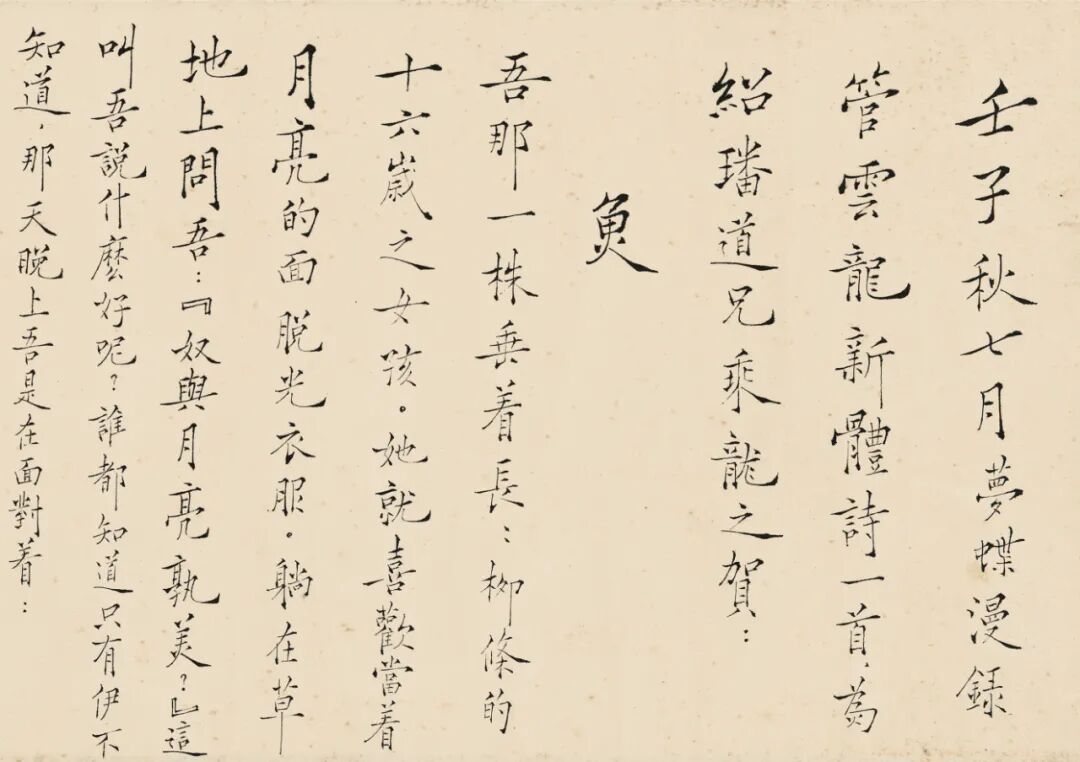 壬子秋七月夢蝶漫錄
管雲龍新體詩一首，為
紹璠道兄乘龍之賀：
奐
吾那一株垂着長：柳條的
十六歲之女孩。她就喜歡當着
月亮的面脫光衣服。躺在草
地上問吾：『奴與月亮孰美？』這
叫吾說什麼好呢？誰都知道只有伊不
知道，那天晚上吾是在面對着：